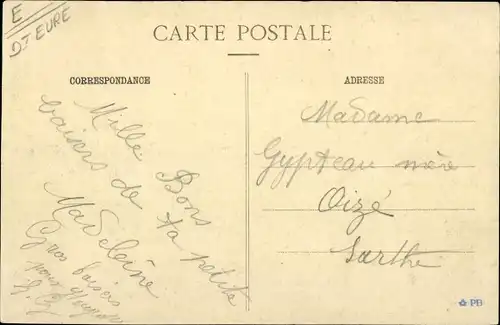 E
DT EURE
CARTE POSTALE
CORRESPONDANCE
ADRESSE
Mille Bons
baisers de ta petite
Madeleine
Gros baisers
pour
Madame
Gypteau mère
Oizé
Sarthe
PB